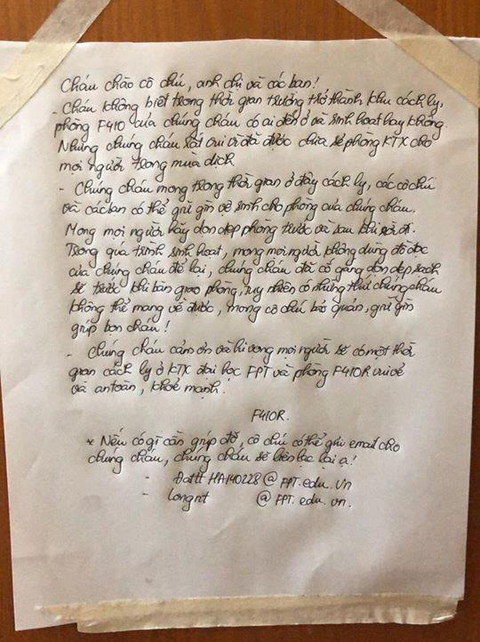 Cháu chào cô chú, anh chị và các bạn!
- Cháu không biết trong thời gian trường trở thành khu cách ly,
phòng F410 của chúng cháu có ai đến ở và sinh hoạt hay không.
Nhưng chúng cháu rất vui vì đã được chia sẻ phòng KTX cho
mọi người trong mùa dịch.
- Chúng cháu mong trong thời gian ở đây cách ly, các cô chú
và các bạn có thể giữ gìn vệ sinh cho phòng của chúng cháu.
Mong mọi người hãy dọn dẹp phòng trước và sau khi rời đi.
Trong quá trình sinh hoạt, mong mọi người không dùng đồ đạc
của chúng cháu để lại, chúng cháu đã cố gắng dọn dẹp sạch
sẽ trước khi bàn giao phòng, tuy nhiên có những thứ chúng cháu
không thể mang về được, mong cô chú bảo quản, giữ gìn
giúp bọn cháu!
- Chúng cháu cảm ơn và hi vọng mọi người sẽ có một thời
gian cách ly ở KTX đại học FPT và phòng F410R vui vẻ
và an toàn, khoẻ mạnh.
F410R.
* Nếu có gì cần giúp đỡ, cô chú có thể gửi email cho
chúng cháu, chúng cháu sẽ liên lạc lại ạ!
- Datlt HA140228@FPT.edu.vn
- Longnt @FPT.edu.vn.